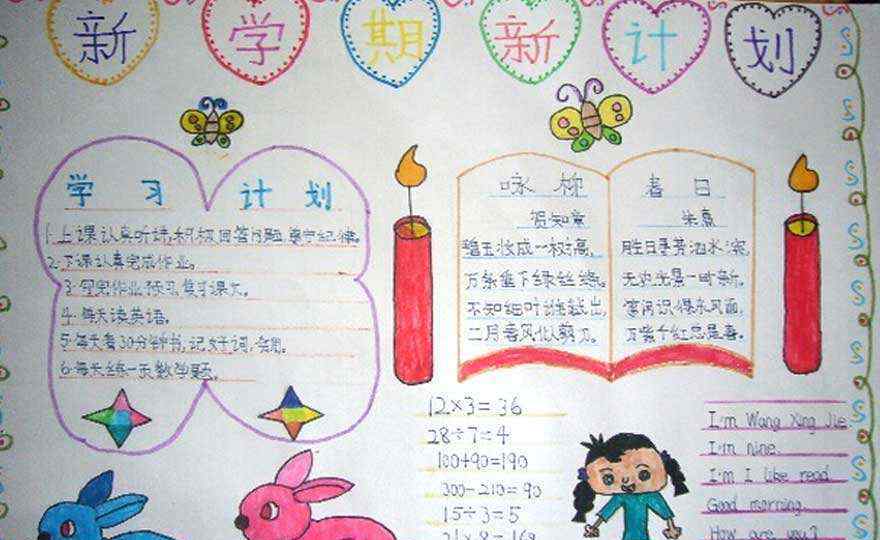 新学期新计划
学习计划
1.上课认真听讲,积极回答问题,遵守纪律。
2.下课认真完成作业。
3.写完作业预习,复习课文。
4.每天读英语。
5.每天看30分钟书,记好词,
6.每天练一页数学题。
咏柳
贺知章
碧玉妆成一树高,
万条垂下绿丝绦。
不知细叶谁裁出,
二月春风似剪刀。
春日
朱熹
胜日寻芳泗水滨,
无边光景一时新。
等闲识得东风面,
万紫千红总是春。
12×3=36
28÷7=4
100+90=190
300-210=90
15÷3=5
21×8=168
I'm Wang Xing Jie
I'm nine.
I'm I like read
Good morning.
How are you?